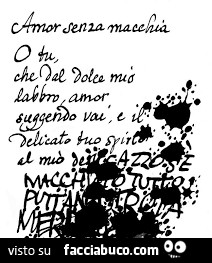 Amor senza macchia
O tu,
che dal dolce mio
labbro, amor
suggendo vai, e il
delicato tuo spirto
al mio
MACCHIATO TUTTO
visto su facciabuco.com